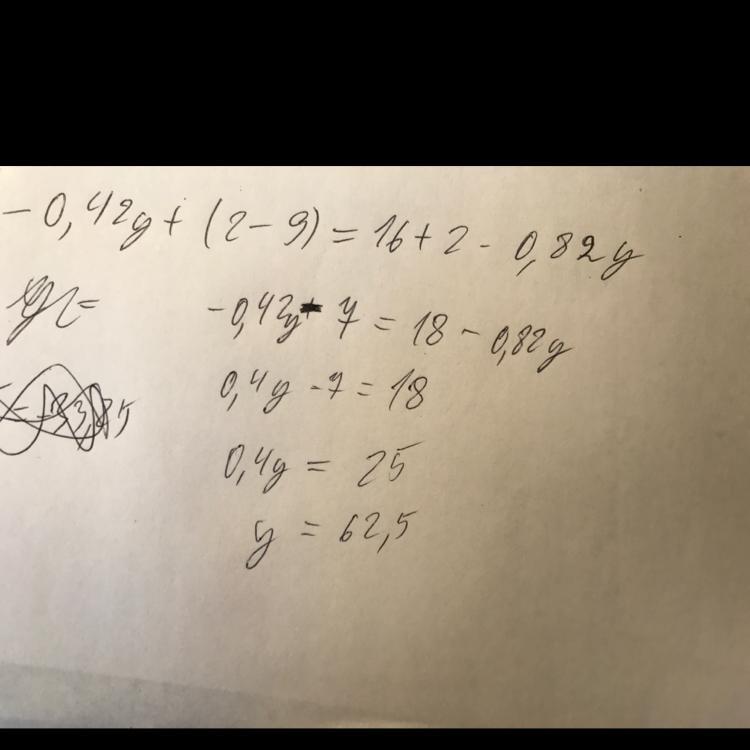 -0,42y + (2-9) = 16 + 2 - 0,82y
-0,42y - 7 = 18 - 0,82y
0,4y - 7 = 18
0,4y = 25
y = 62,5